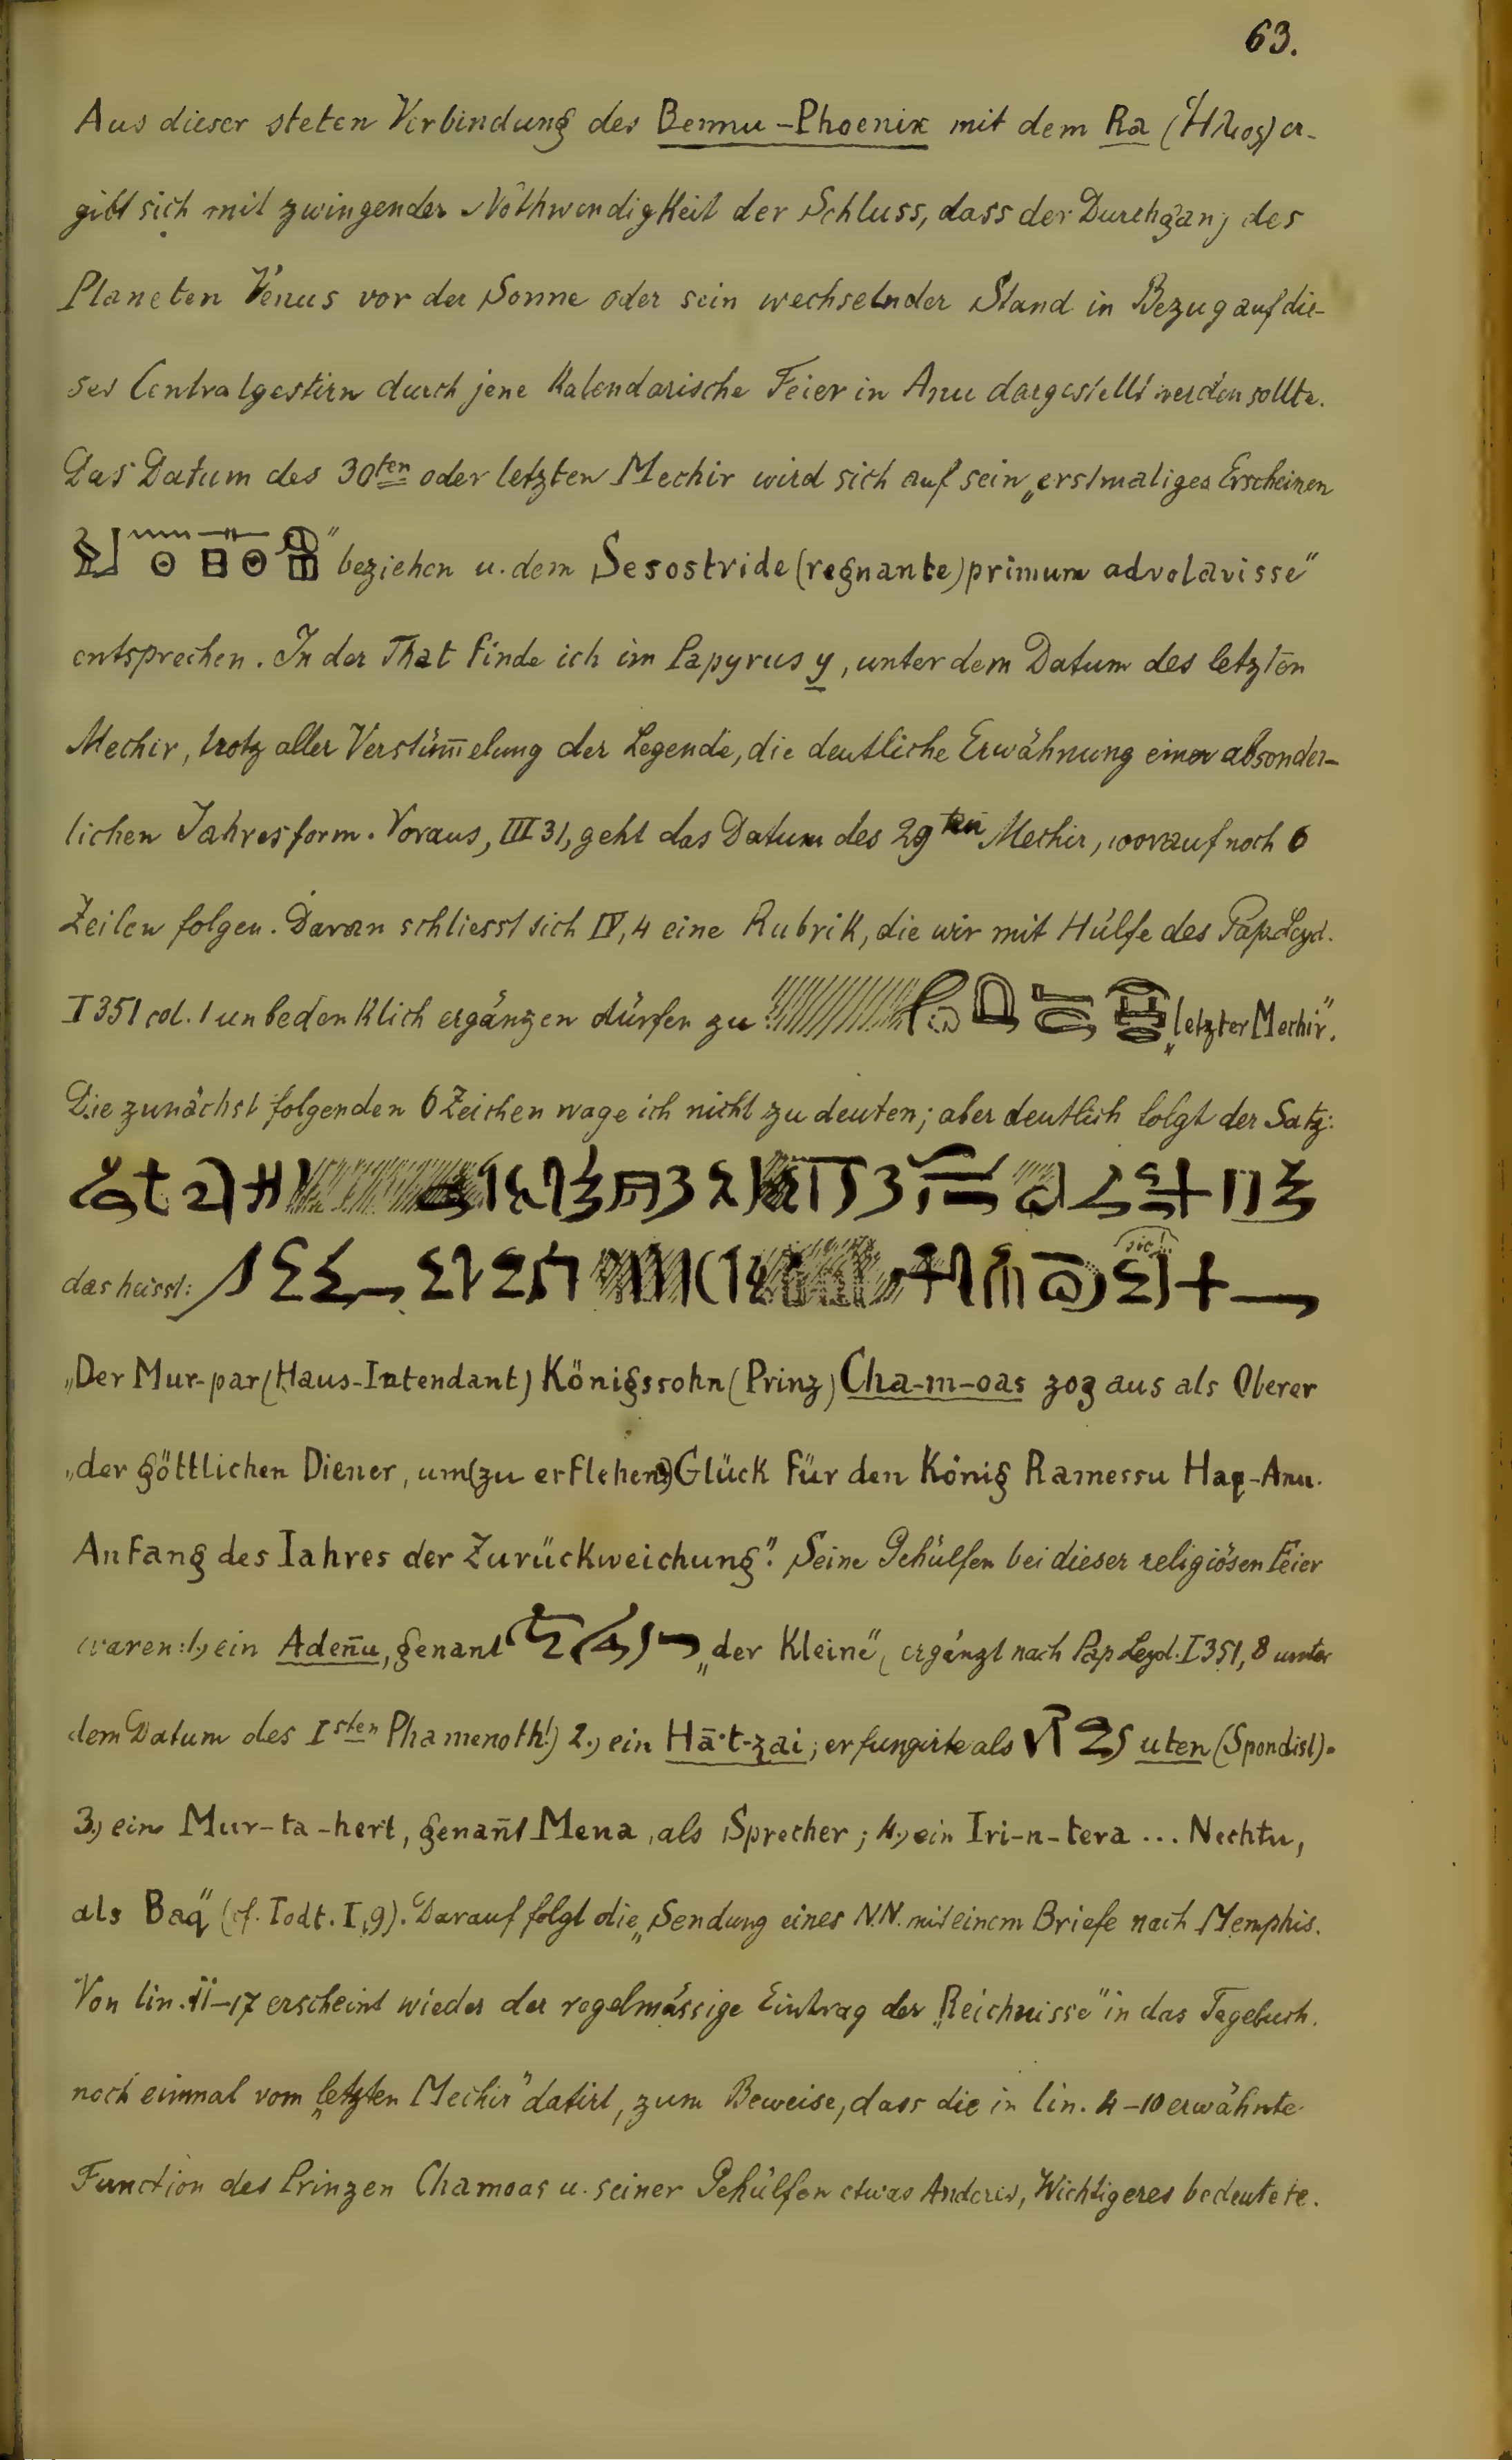 63.
Aus dieser steten Verbindung des Bennu-Phoenix mit dem Ra (Ἥλιος) er-
gibt sich mit zwingender Nothwendigkeit der Schluss, dass der Durchgang des
Planeten Venus vor der Sonne oder sein wechselnder Stand in Bezug auf die-
ses Centralgestirn durch jene kalendarische Feier in Anu dargestellt werden sollte.
Das Datum des 30ten oder letzten Mechir wird sich auf sein „erstmaliges Erscheinen
" beziehen u. dem Sesostride (regnante) primum advolavisse"
entsprechen. In der That finde ich im Papyrus y, unter dem Datum des letzten
Mechir, trotz aller Verstüm̄elung der Legende, die deutliche Erwähnung einer absonder-
lichen Jahresform. Voraus, III 31, geht das Datum des 29ten Mechir, worauf noch 6
Zeilen folgen. Daran schliesst sich IV, 4 eine Rubrik, die wir mit Hülfe des Pap. Leyd.
I 351 col. 1 unbedenklich ergänzen dürfen zu „letzter Mechir".
Die zunächst folgenden 6 Zeichen wage ich nicht zu deuten; aber deutlich folgt der Satz:
(sic!)
das heisst:
„Der Mur-par (Haus-Intendant) Königssohn (Prinz) Cha-m-oas zog aus als Oberer
„der göttlichen Diener, um (zu erflehen?) Glück für den König Ramessu Haq-Anu.
Anfang des Iahres der Zurückweichung". Seine Gehülfen bei dieser religiösen Feier
waren: 1., ein Aden̄u, genant „der Kleine" (ergänzt nach Pap Leyd. I 351, 8 unter
dem Datum des Isten Phamenoth!) 2., ein Hā·t-zai; er fungirte als uten (Spondist).
3., ein Mur-ta-hert, genan̄t Mena, als Sprecher; 4., ein Iri-n-tera ... Nechtu,
als Baq" (cf. Todt. I, 9). Darauf folgt die „Sendung eines N.N. mit einem Briefe nach Memphis.
Von lin. 11-17 erscheint wieder der regelmässige Eintrag der „Reichnisse" in das Tagebuch,
noch einmal vom „letzten Mechir" datirt, zum Beweise, dass die in lin. 4-10 erwähnte
Function des Prinzen Chamoas u. seiner Gehülfen etwas Anderes, Wichtigeres bedeutete.